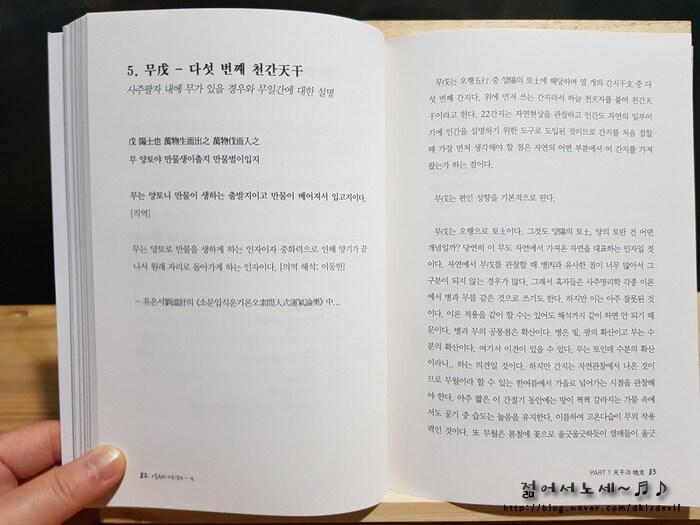 5. 무戊 – 다섯 번째 천간天干
사주팔자 내에 무가 있을 경우와 무일간에 대한 설명
戊 陽土也 萬物生而出之 萬物伐而入之
무 양토야 만물생이출지 만물벌이입지
무는 양토니 만물이 생하는 출발지이고 만물이 베어져서 입고지이다.
[직역]
무는 양토로 만물을 생하게 하는 인자이자 중화력으로 인해 양기가 끝
나서 원래 자리로 돌아가게 하는 인자이다. [의역 해석: 이동헌]
– 유온서劉溫舒의 《소문입식운기론오素問入式運氣論奧》 中...
82
무戊는 오행五行 중 양陽의 토土에 해당하며 열 개의 간지干支 중 다
섯 번째 간지다. 위에 먼저 쓰는 간지라서 하늘 천天자를 붙여 천간天
干이라고 한다. 22간지는 자연현상을 관찰하고 인간도 자연의 일부이
기에 인간을 설명하기 위한 도구로 도입된 것이므로 간지를 처음 접할
때 가장 먼저 생각해야 할 점은 자연의 어떤 부분에서 이 간지를 가져
왔는가 하는 점이다.
무戊는 편인 성향을 기본적으로 띤다.
무戊는 오행으로 토土이다. 그것도 양陽의 토土, 양의 토란 건 어떤
개념일까? 당연히 이 무도 자연에서 가져온 자연을 대표하는 인자일 것
이다. 자연에서 무戊를 관찰할 때 병丙과 유사한 점이 너무 많아서 그
구분이 되지 않는 경우가 많다. 그래서 혹자들은 사주명리학 각종 이론
에서 병과 무를 같은 것으로 쓰기도 한다. 하지만 이는 아주 잘못된 것
이다. 이론 적용을 같이 할 수는 있어도 해석까지 같이 하면 안 되기 때
문이다. 병과 무의 공통점은 확산이다. 병은 빛, 광의 확산이고 무는 수
분의 확산이다. 여기서 이견이 있을 수 있다. 무는 토인데 수분의 확산
이라니.. 하는 의견일 것이다. 하지만 간지는 자연관찰에서 나온 것이
므로 무월이라 할 수 있는 한여름에서 가을로 넘어가는 시점을 관찰해
야 한다. 아주 짧은 이 간절기 동안에는 땅이 쩍쩍 갈라지는 가뭄 속에
서도 공기 중 습도는 높음을 유지한다. 이름하여 고온다습이 무의 작용
력인 것이다. 또 무월은 봄철에 꽃으로 울긋불긋하듯이 열매들이 울긋
PART 1 天干과 地支 83
젊어서노세~♬♪
http://blog.naver.com/dkizdevil